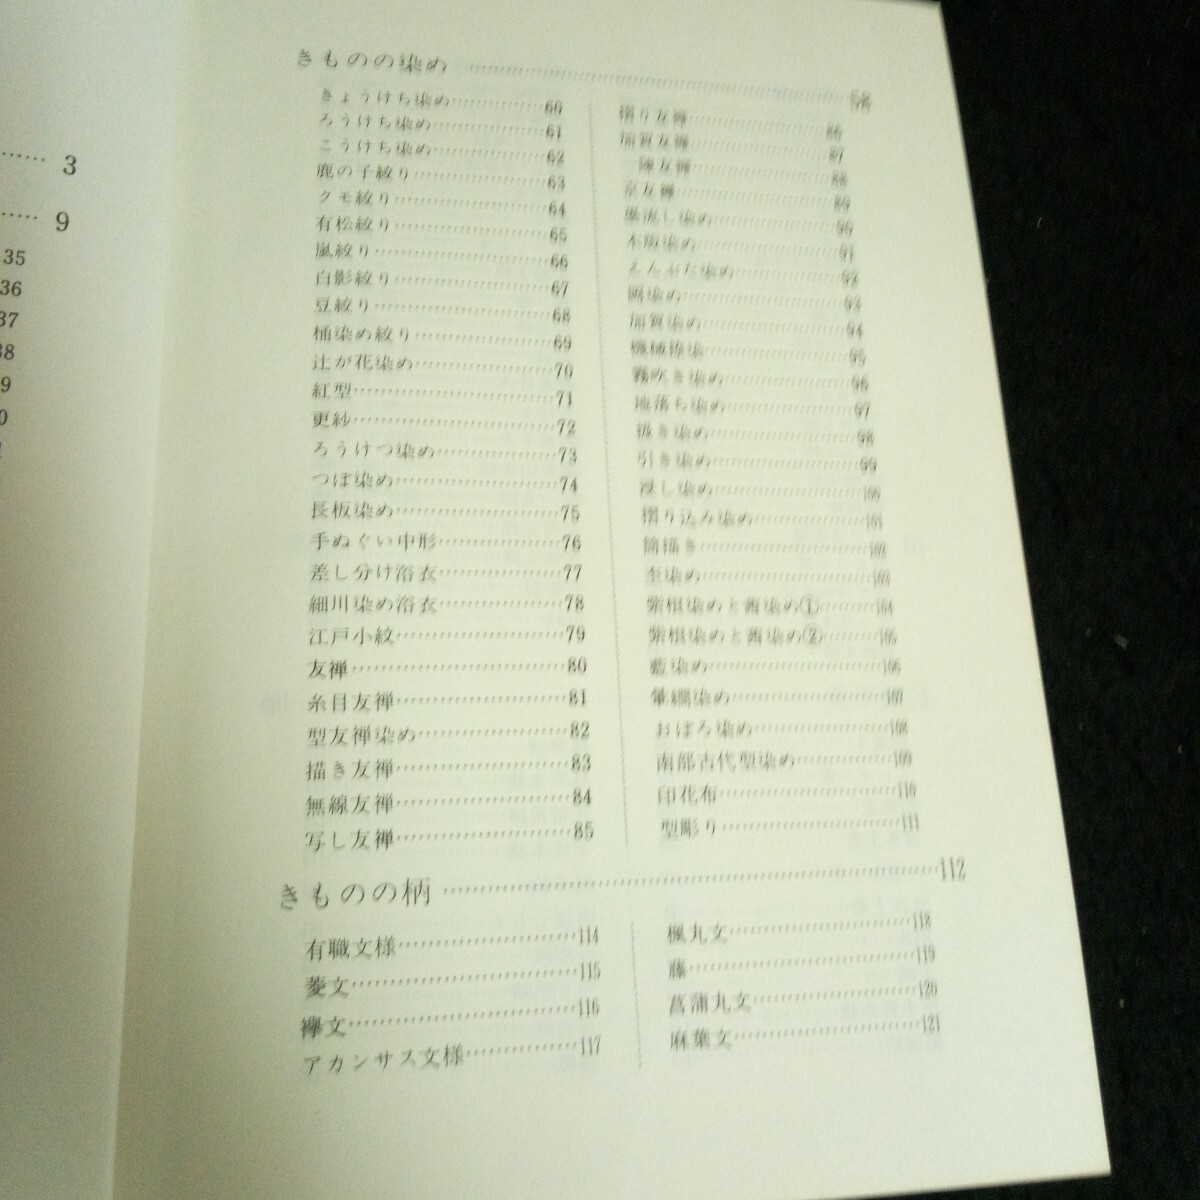 3
9
35
36
37
38
きものの染め……58
きょうけち染め……60
ろうけち染め……61
こうけち染め……62
鹿の子絞り……63
クモ絞り……64
有松絞り……65
嵐絞り……66
白影絞り……67
豆絞り……68
桶染め絞り……69
辻が花染め……70
紅型……71
更紗……72
ろうけつ染め……73
つぼ染め……74
長板染め……75
手ぬぐい中形……76
差し分け浴衣……77
細川染め浴衣……78
江戸小紋……79
友禅……80
糸目友禅……81
型友禅染め……82
描き友禅……83
無線友禅……84
写し友禅……85
摺り友禅……86
加賀友禅……87
友禅……88
京友禅……89
墨流し染め……90
木版染め……91
染め……92
染め……93
加賀染め……94
機械捺染……95
霧吹き染め……96
地落ち染め……97
抜き染め……98
引き染め……99
浸し染め……100
摺り込み染め……101
筒描き……102
染め……103
紫根染めと茜染め①……104
紫根染めと茜染め②……105
藍染め……106
暈繝染め……107
おぼろ染め……108
南部古代型染め……109
印花布……110
型彫り……111
きものの柄……112
有職文様……114
菱文……115
襷文……116
アカンサス文様……117
楓丸文……118
藤……119
菖蒲丸文……120
麻葉文……121